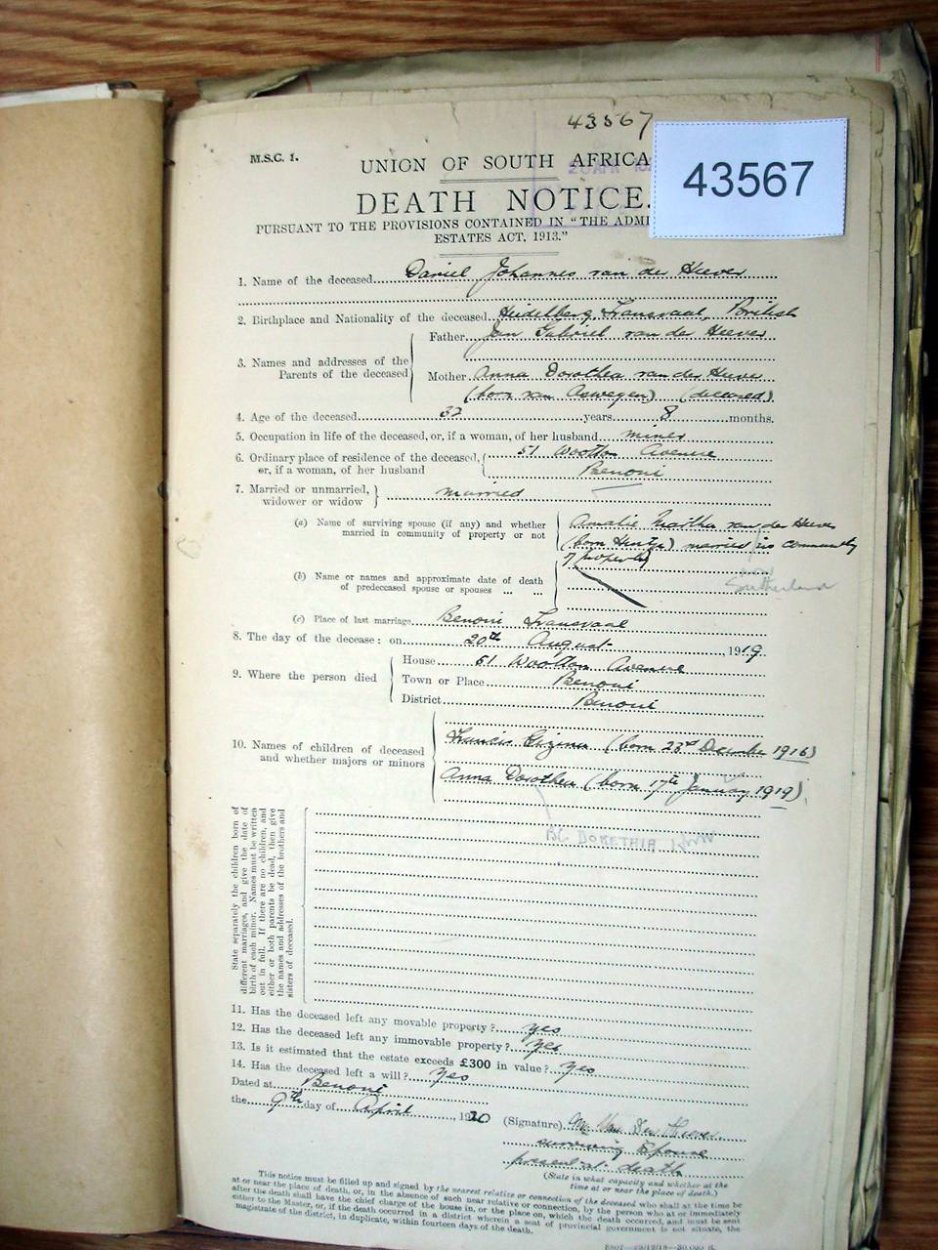 43567
43567
M.S.C. 1.
UNION OF SOUTH AFRICA
DEATH NOTICE.
PURSUANT TO THE PROVISIONS CONTAINED IN "THE ADMI
ESTATES ACT, 1913."
1. Name of the deceased Daniel Johannes van der Heever
2. Birthplace and Nationality of the deceased Heidelberg, Transvaal, British
Father Jan Gabriel van der Heever
3. Names and addresses of the
Parents of the deceased
Mother Anna Dorothea van der Heever
(born van Aswegen) (deceased)
4. Age of the deceased 37 years 8 months.
5. Occupation in life of the deceased, or, if a woman, of her husband miner
6. Ordinary place of residence of the deceased, 51 Wootton Avenue
or, if a woman, of her husband Benoni
7. Married or unmarried,
widower or widow married
(a) Name of surviving spouse (if any) and whether
married in community of property or not
Amalie Martha van der Heever
(born) married in community
of property
(b) Name or names and approximate date of death
of predeceased spouse or spouses ... ...
Sutherland
(c) Place of last marriage Benoni Transvaal
8. The day of the decease: on 20th August, 1919.
House 51 Wootton Avenue
9. Where the person died
Town or Place Benoni
District Benoni
10. Names of children of deceased
and whether majors or minors
Francis (born 23rd December 1916)
Anna Dorothea (born 17th January 1919)
BC DORETHIA
State separately the children born of
different marriages, and give the date of
birth of each minor. Names must be written
out in full. If there are no children, and
either or both parents be dead, then give
the names and addresses of the brothers and
sisters of deceased.
11. Has the deceased left any movable property? yes
12. Has the deceased left any immovable property? yes
13. Is it estimated that the estate exceeds £300 in value? yes
14. Has the deceased left a will? yes
Dated at Benoni
the 9th day of April, 1920
(Signature) Van der Heever
surviving Spouse
present at death
(State in what capacity and whether at the
time at or near the place of death.)
This notice must be filled up and signed by the nearest relative or connection of the deceased who shall at the time be
at or near the place of death, or, in the absence of such near relative or connection, by the person who at or immediately
after the death shall have the chief charge of the house in, or the place on, which the death occurred, and must be sent
either to the Master, or, if the death occurred in a district wherein a seat of provincial government is not situate, the
magistrate of the district, in duplicate, within fourteen days of the death.